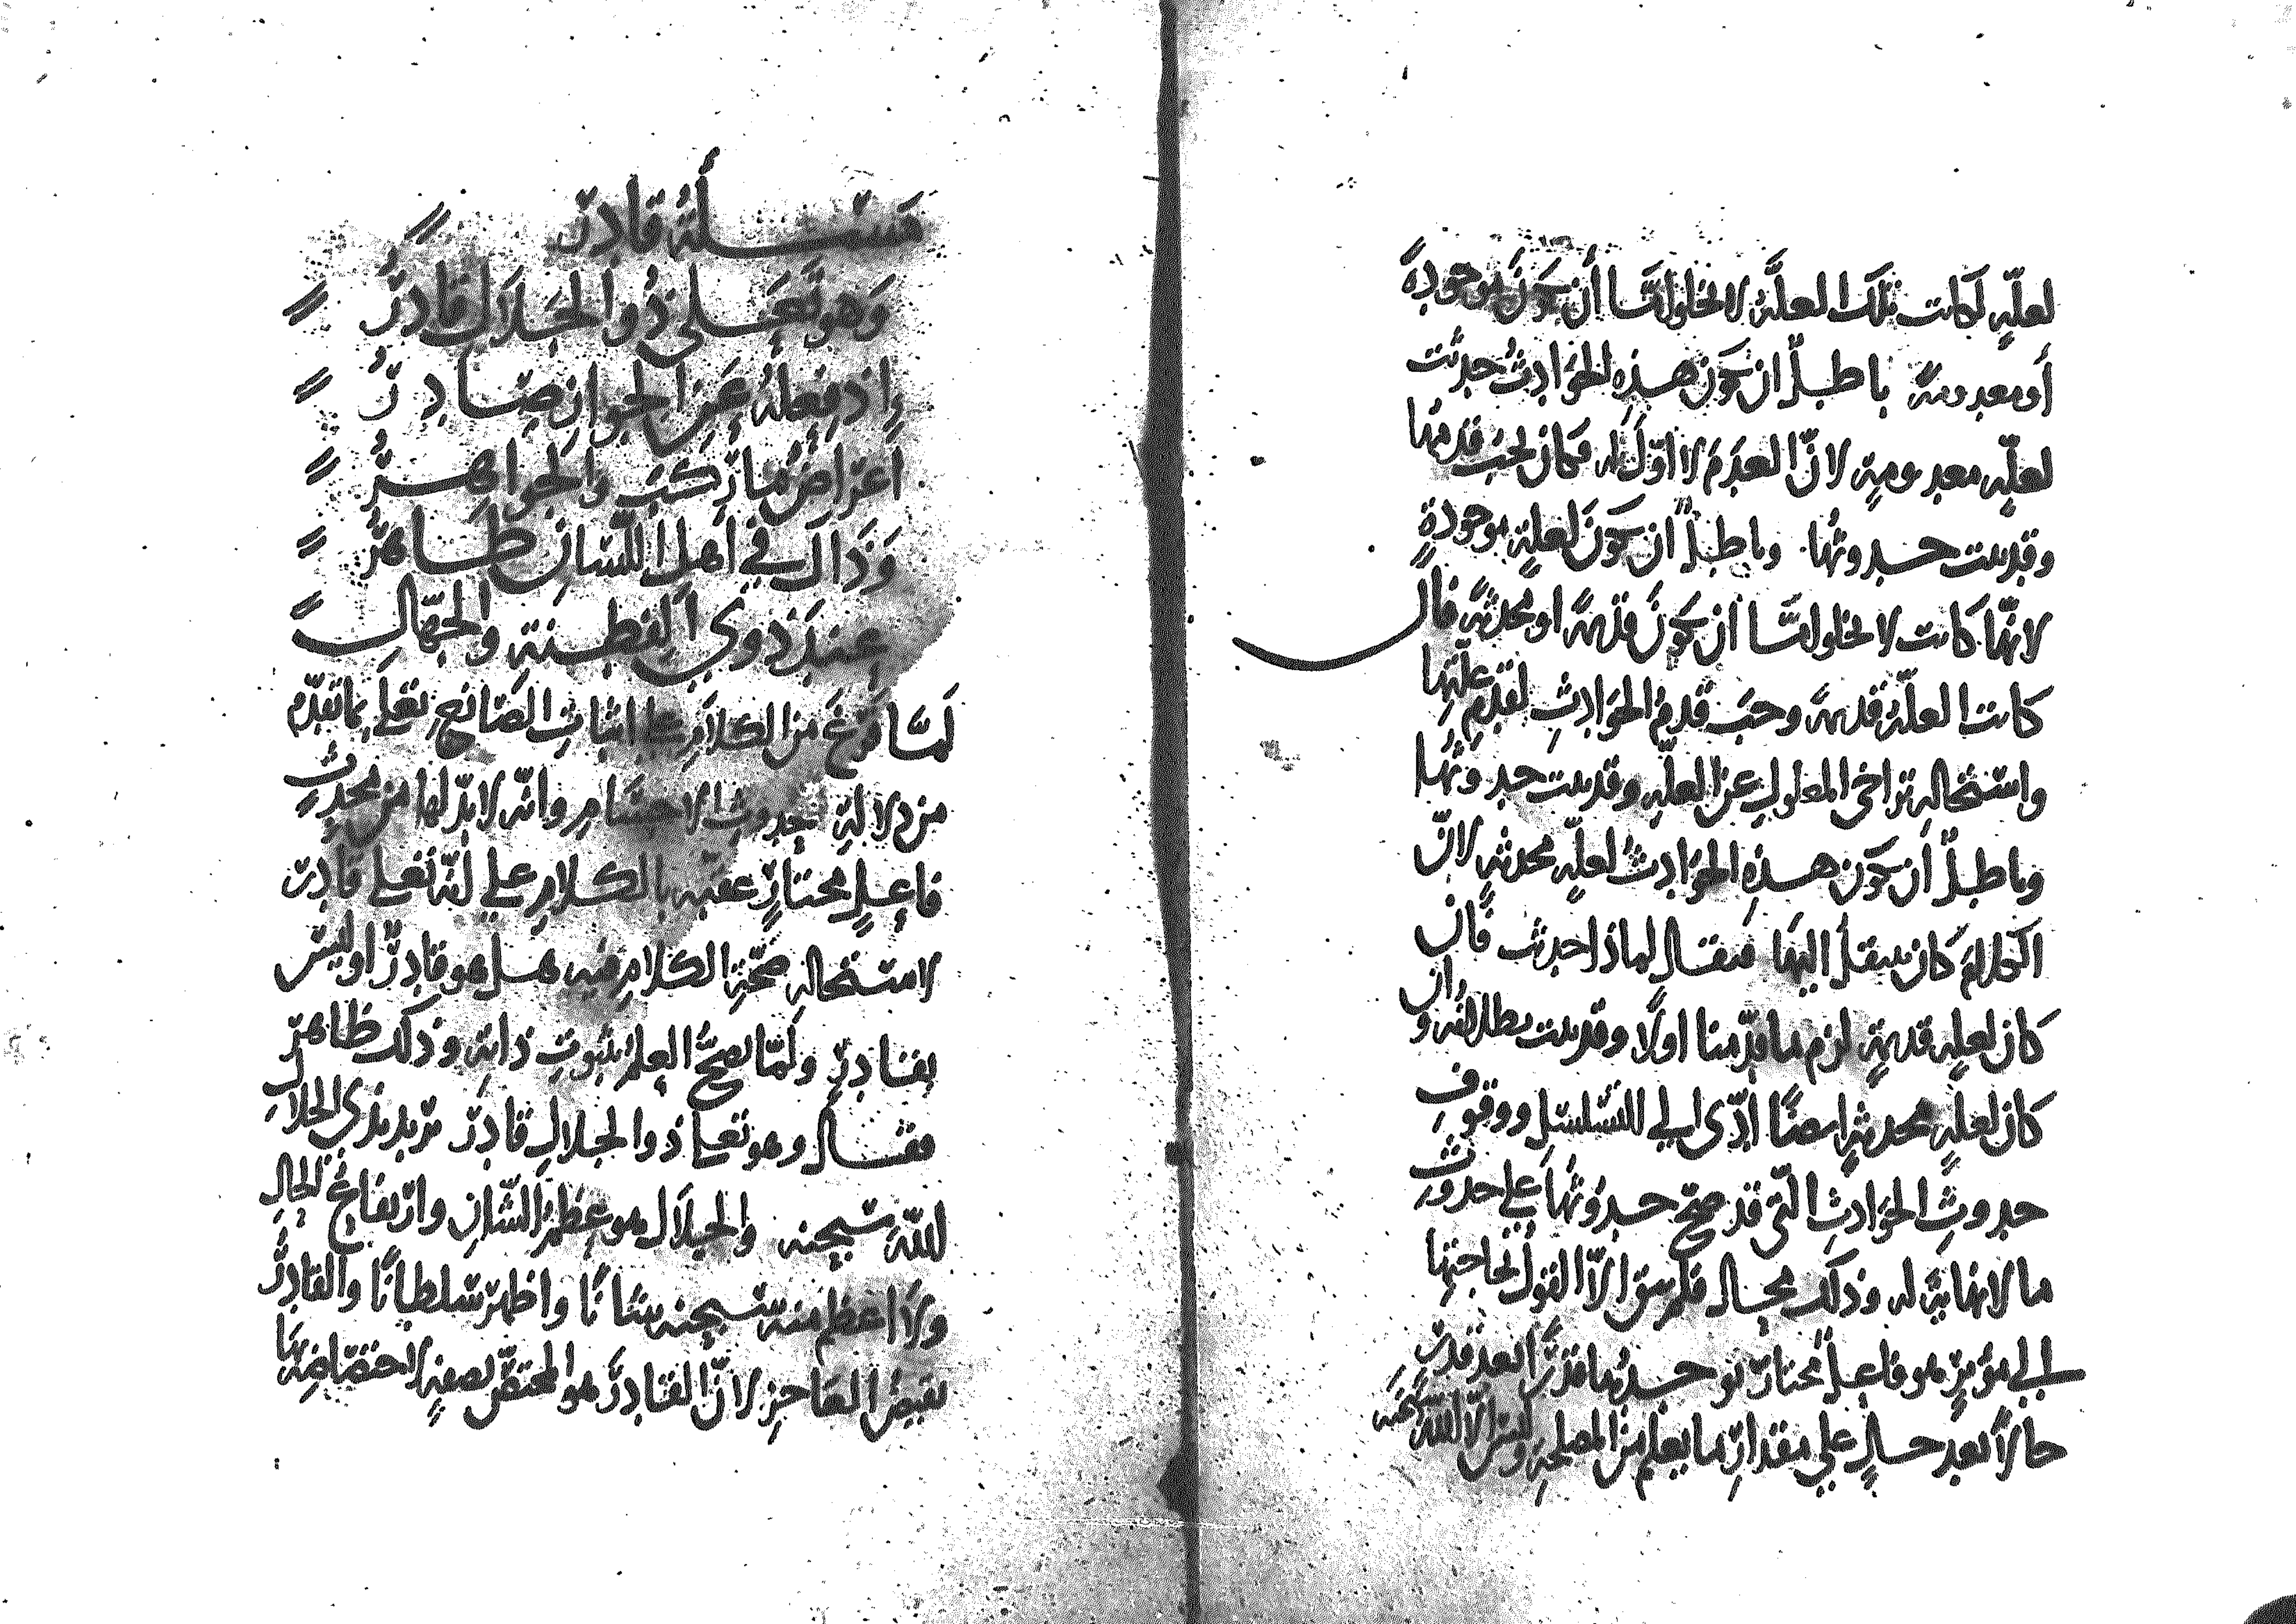 لعلّةٍ لكانت تلك العلّة لا تخلوا امّا أن تكون موجودةً
أو معدومةً باطلٌ ان تكون هذه الحوادث حدثت
لعلّةٍ معدومةٍ لانّ العدم لا اوّل له فكان يجب قدمها
وقد ثبت حدوثها وباطلٌ ان تكون لعلةٍ موجودةٍ
لانّها كانت لا تخلوا امّا ان تكون قديمةً او محدثةً فان
كانت العلّة قديمةً وجب قدم الحوادثِ لقدم علّتها
واستحالة تراخي المعلول عن العلّة وقد ثبت حدوثها
وباطلٌ أن تكون هذه الحوادث لعلّةٍ محدثةٍ لانّ
الكلام كان ينتقل اليها فيقال لماذا حدثت فان
كان لعلةٍ قديمةٍ لزم ما قدّمنا اولًا وقد ثبت بطلانه وان
كان لعلةٍ محدثةٍ ايضًا ادّى الي التسلسل ووقوف
حدوثِ الحوادثِ الّتي قد صحّ حدوثها علي حدوث
ما لا نهاية له وذلك محال فلم يبق الاّ القول بحاجتها
الي مؤثرٍ هو فاعلٌ مختارٌ يوجدها قدرًا بعد قدرٍ
حالاً بعد حالٍ علي مقدار ما يعلم من المصلحة وليس الّا الله سبحنه
مسـألة قادر
وهو تعلى ذو الجلال قادرُ
إذ فعله عن الجواز صادرُ
اعراض ما رُكّب والجواهرُ
وذاك في اهل اللسان ظاهرُ
عند ذوي الفطنة والجهّالِ
لمّا فرغ من الكلام علي اثبات الصانع تعلى بما تقدّم
من دلالة حدوث الاجسام وانّه لا بدّ لها من محدثٍ
فاعلٍ مختارٍ عقّبه بالكلام علي انّه تعلى قادر
لاستحالة صحّة الكلام فيه هل هو قادرٌ او ليس
بقادرٍ ولمّا يصحّ العلم بثبوت ذاته وذلك ظاهر
فقال وهو تعلى ذو الجلال قادر يريد بذي الجلال
الله سبحنه والجلال هو عظم الشان وارتفاع الحال
ولا اعظم منه سبحنه شانًا واظهر سلطانًا والقادر
نقيض العاجز لانّ القادر هو المختصّ بصفةٍ لاختصاصه بها